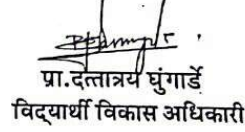 प्रा.दत्तात्रय घुंगार्डे
विद्यार्थी विकास अधिकारी